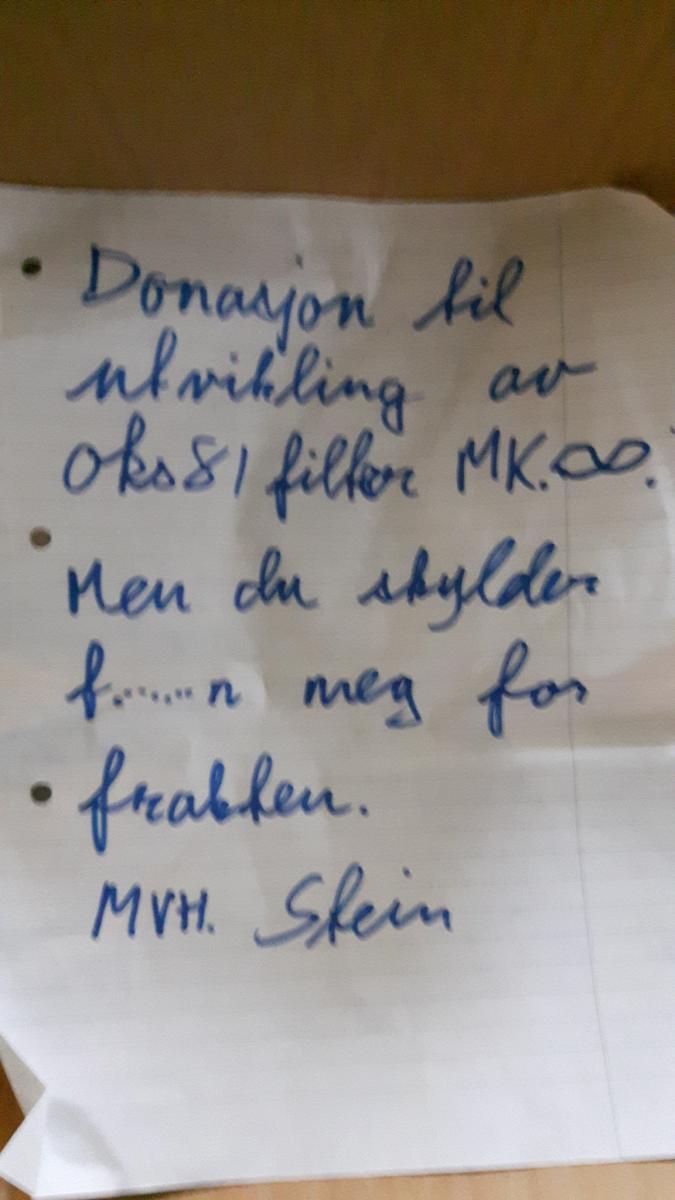 Donasjon til
utvikling av
Oks81 filter MK.∞.
Men du skylder
f......n meg for
frakten.
MVH. Stein